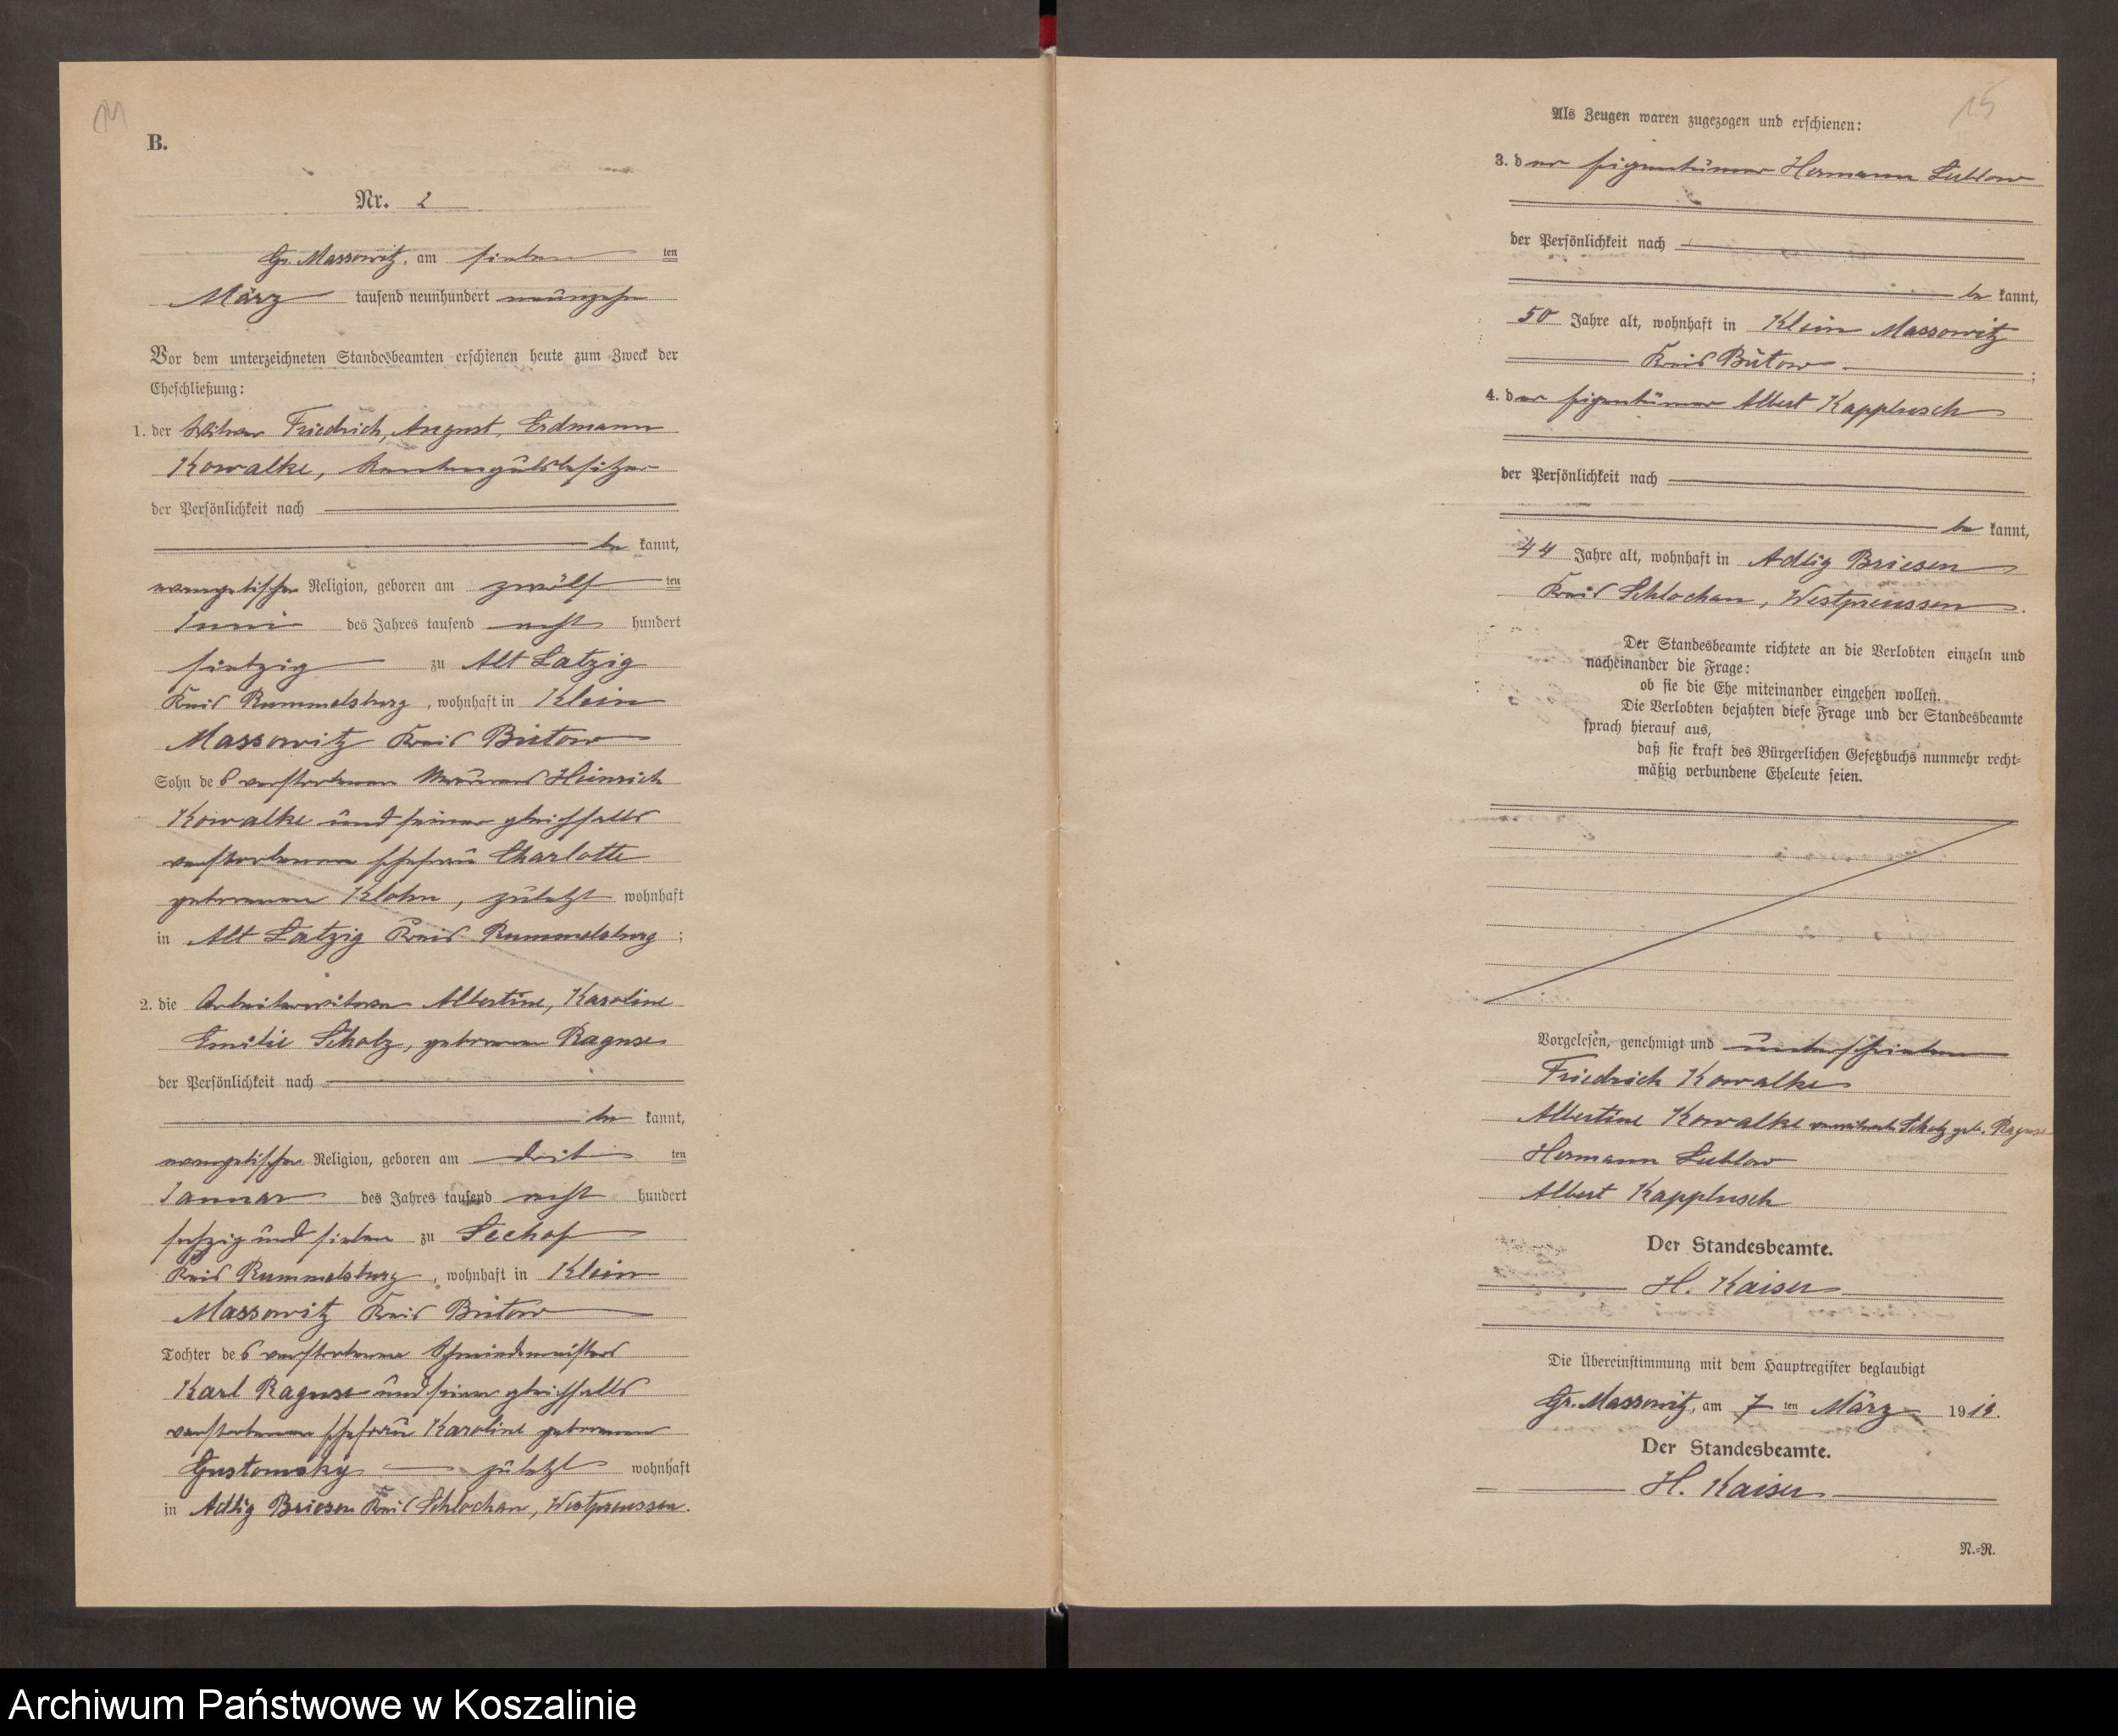 B.
Nr. 2
Gr. Massowitz, am sieben ten
März tausend neunhundert neunzehn
Vor dem unterzeichneten Standesbeamten erschienen heute zum Zweck der
Eheschließung:
1. der Witwer Friedrich, August, Erdmann
Kowalke, Rentengutsbesitzer
der Persönlichkeit nach
be kannt,
evangelischer Religion, geboren am zwölf ten
Juni des Jahres tausend acht hundert
siebzig zu Alt Latzig
Kreis Rummelsburg, wohnhaft in Klein
Massowitz Kreis Bütow
Sohn des verstorbenen Heinrich
Kowalke und seiner gleichfalls
verstorbenen Ehefrau Charlotte
geborenen Klohn, zuletzt wohnhaft
in Alt Latzig Kreis Rummelsburg;
2. die Arbeiterwitwe Albertine, Karoline
Emilie Scholz, geborene Raguse
der Persönlichkeit nach
be kannt,
evangelischer Religion, geboren am drit ten
Januar des Jahres tausend acht hundert
sechzig und sieben zu Seehof
Kreis Rummelsburg, wohnhaft in Klein
Massowitz Kreis Bütow
Tochter des verstorbenen Schmiedemeisters
Karl Raguse und seiner gleichfalls
verstorbenen Ehefrau Karoline geborenen
Gustomsky zuletzt wohnhaft
in Adlig Briesen Kreis Schlochau, Westpreussen.
15
Als Zeugen waren zugezogen und erschienen:
3. der Eigentümer Hermann Lublow
der Persönlichkeit nach
be kannt,
50 Jahre alt, wohnhaft in Klein Massowitz
Kreis Bütow;
4. der Eigentümer Albert Kapplusch
der Persönlichkeit nach
be kannt,
44 Jahre alt, wohnhaft in Adlig Briesen
Kreis Schlochau, Westpreussen.
Der Standesbeamte richtete an die Verlobten einzeln und
nacheinander die Frage:
ob sie die Ehe miteinander eingehen wollen.
Die Verlobten bejahten diese Frage und der Standesbeamte
sprach hierauf aus,
daß sie kraft des Bürgerlichen Gesetzbuchs nunmehr recht-
mäßig verbundene Eheleute seien.
Vorgelesen, genehmigt und unterschrieben
Friedrich Kowalke
Albertine Kowalke verwitwete Scholz geb. Raguse
Hermann Lublow
Albert Kapplusch
Der Standesbeamte.
H. Kaiser
Die Übereinstimmung mit dem Hauptregister beglaubigt
Gr. Massowitz, am 7 ten März 1919.
Der Standesbeamte.
H. Kaiser
N.-R.
Archiwum Państwowe w Koszalinie